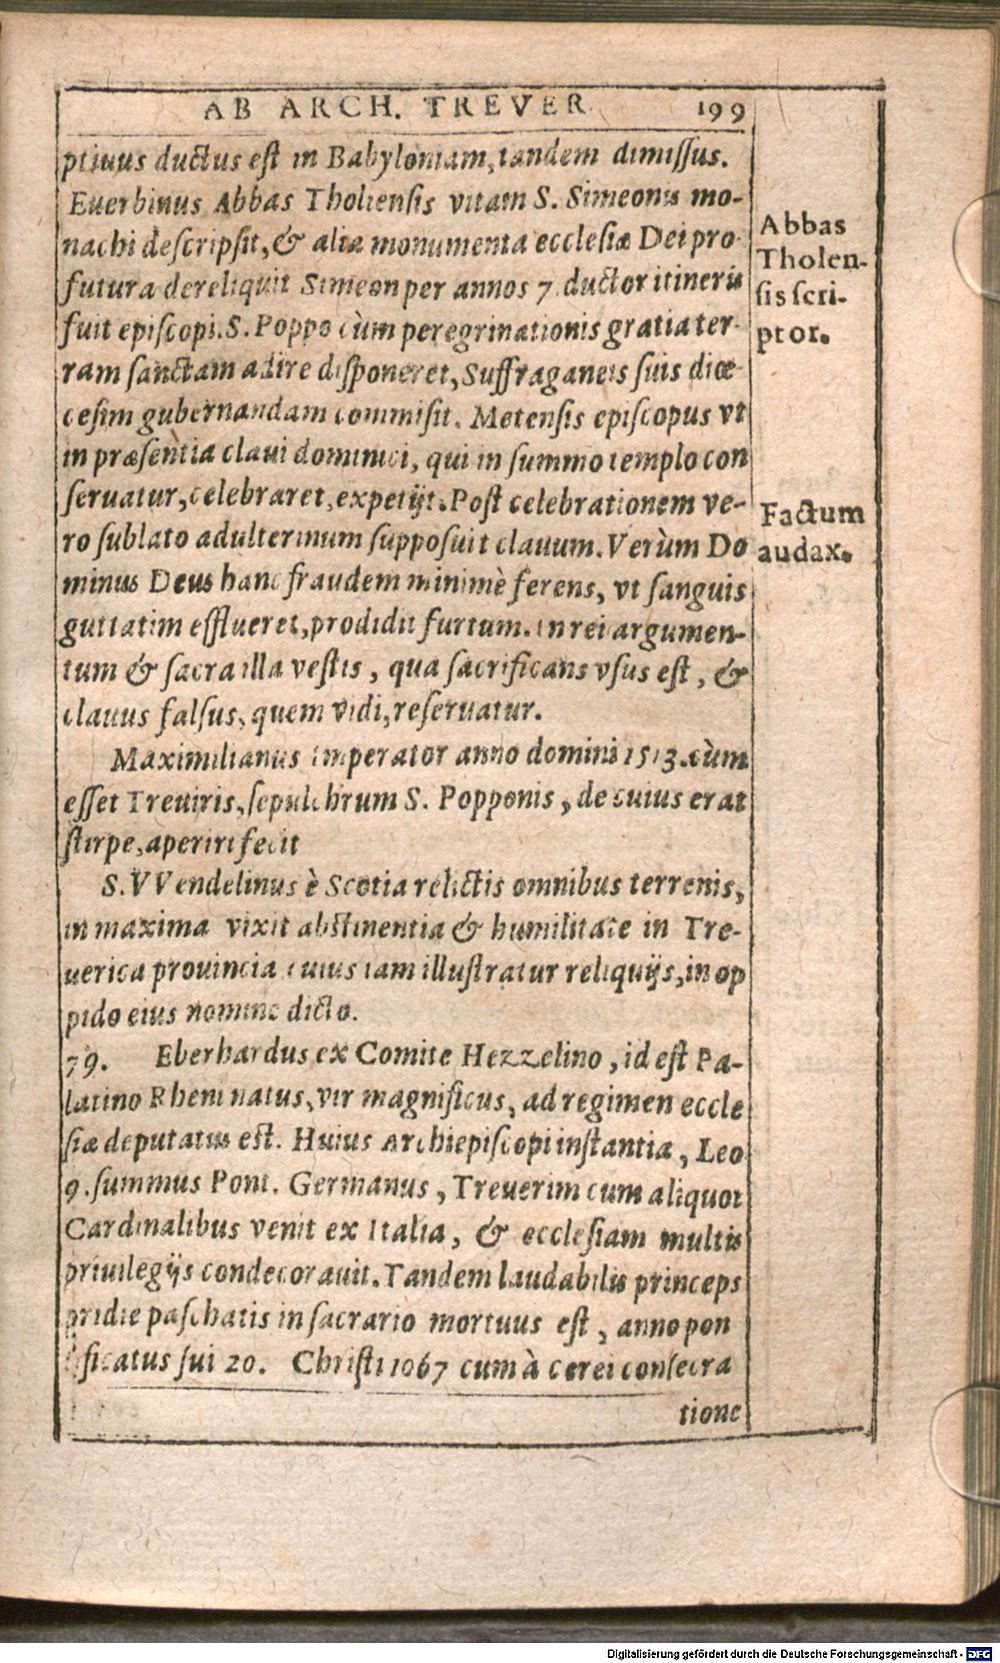 AB ARCH. TREVER 199
ptiuus ductus est in Babyloniam, tandem dimissus.
Euerbinus Abbas Tholiensis vitam S. Simeonis mo-
nachi descripsit, & alia monumenta ecclesiæ Dei pro
futura dereliquit Simeon per annos 7 ductor itineris
fuit episcopi. S. Poppo cùm peregrinationis gratia ter-
ram sanctam adire disponeret, Suffraganeis suis diœ-
cesim gubernandam commisit. Metensis episcopus vt
in præsentia claui dominici, qui in summo templo con
seruatur, celebraret, expetijt. Post celebrationem ve-
ro sublato adulterinum supposuit clauum. Verùm Do
minus Deus hanc fraudem minimè ferens, vt sanguis
guttatim efflueret, prodidit furtum. in rei argumen-
tum & sacra illa vestis, qua sacrificans vsus est, &
clauus falsus, quem vidi, reseruatur.
Maximilianus imperator anno domini 1513. cùm
esset Treuiris, sepulchrum S. Popponis, de cuius erat
stirpe, aperiri fecit
S. VVendelinus è Scotia relictis omnibus terrenis,
in maxima vixit abstinentia & humilitate in Tre-
uerica prouincia cuius iam illustratur reliquijs, in op
pido eius nomine dicto.
79. Eberhardus ex Comite Hezzelino, id est Pa-
latino Rheni natus, vir magnificus, ad regimen eccle
siæ deputatus est. Huius Archiepiscopi instantia, Leo
9. summus Pont. Germanus, Treuerim cum aliquot
Cardinalibus venit ex Italia, & ecclesiam multis
priuilegijs condecorauit. Tandem laudabilis princeps
pridie paschatis in sacrario mortuus est, anno pon
tificatus sui 20. Christi 1067 cum à cerei consecra
tione
Abbas
Tholen-
sis scri-
ptor.
Factum
audax.
Digitalisierung gefördert durch die Deutsche Forschungsgemeinschaft - DFG